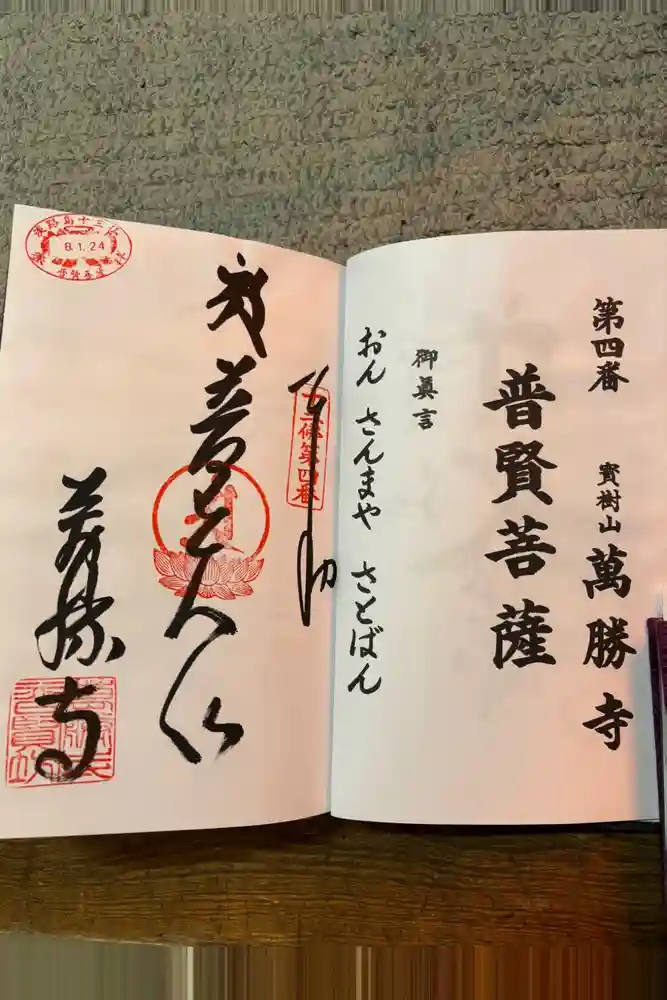 第四番
寳樹山 萬勝寺
普賢菩薩
御眞言
おん さんまや さとばん
奉
十三佛第四番
普賢
萬勝寺
淡路島十三佛
8.1.24